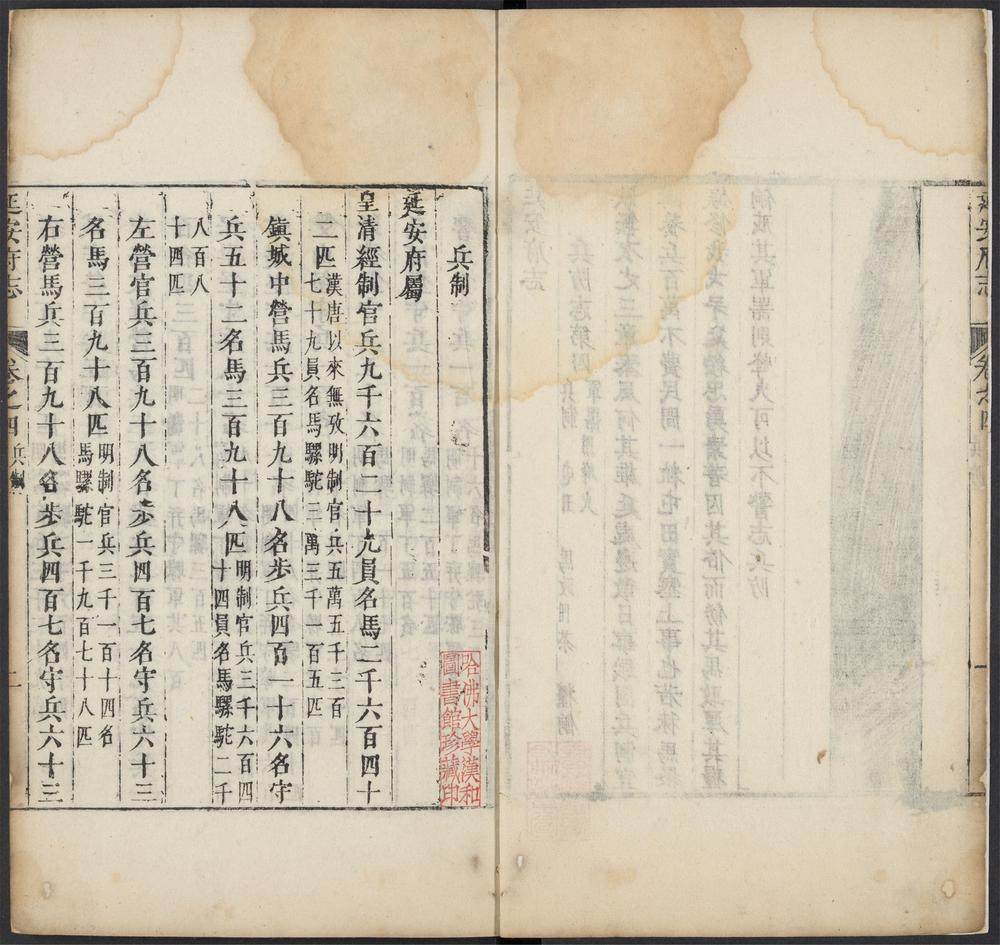 兵制
延安府屬
皇清經制官兵九千六百二十九員名馬二千六百四十
二匹漢唐以來無攷明制官兵五萬五千三百
七十九員名馬騾駝三萬三千一百五匹
鎮城中營馬兵三百九十八名步兵四百一十六名守
兵五十二名馬三百九十八匹明制官兵三千六百四
十四員名馬騾駝二千
八百八
十四匹
左營官兵三百九十八名步兵四百七名守兵六十三
名馬三百九十八匹明制官兵三千一百十四名
馬騾駝一千九百七十八匹
右營馬兵三百九十八名步兵四百七名守兵六十三
延安府志 卷之四 兵制 二
哈佛大學漢和
圖書館珍藏印